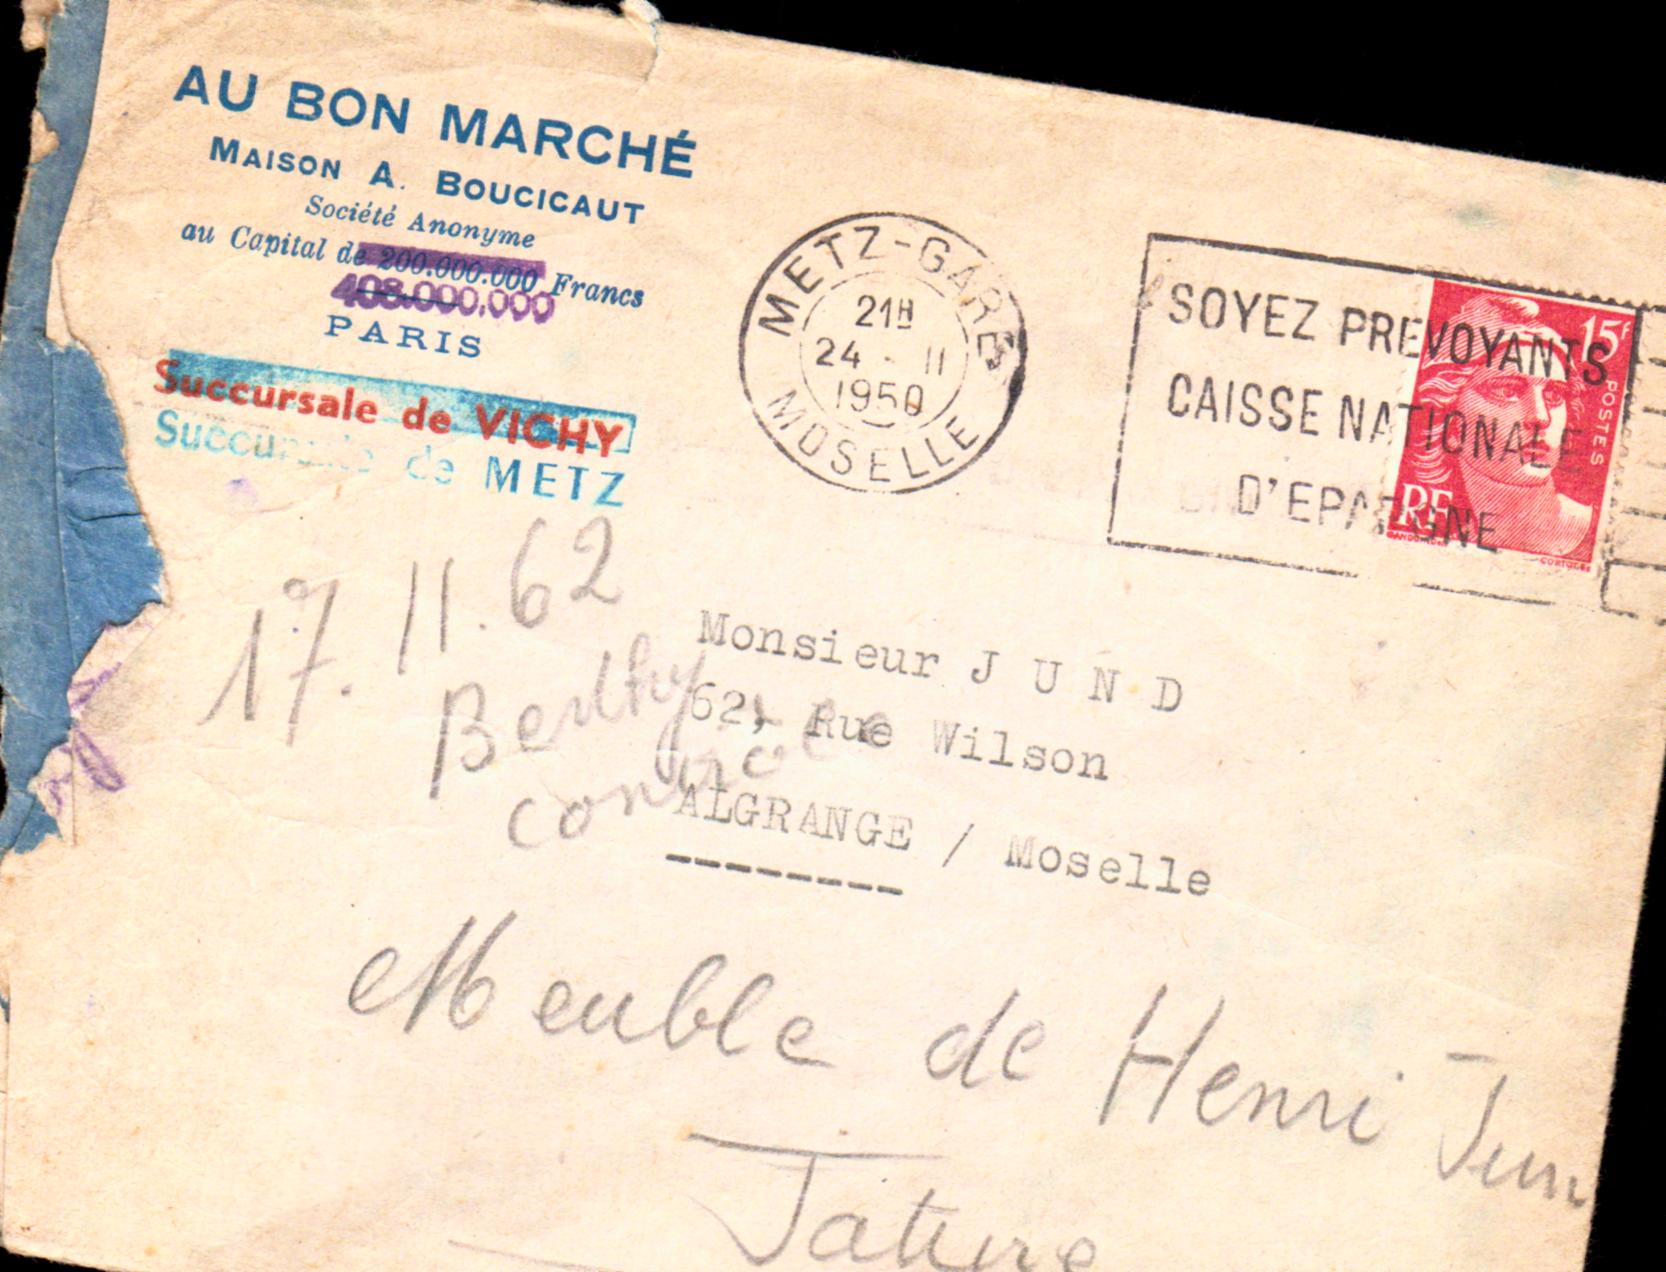 AU BON MARCHÉ
MAISON A. BOUCICAUT
Société Anonyme
au Capital de 200.000.000 Francs
408.000.000
PARIS
Succursale de VICHY
Succursale de METZ
METZ-GARE
21H
24 - 11
1950
MOSELLE
SOYEZ PREVOYANTS
CAISSE NATIONALE
D'EPARGNE
15f
POSTES
RF
GANDON
CORTOT
17.11.62
Berthy
Monsieur J U N D
62, Rue Wilson
ALGRANGE / Moselle
Meuble de Henri Jun